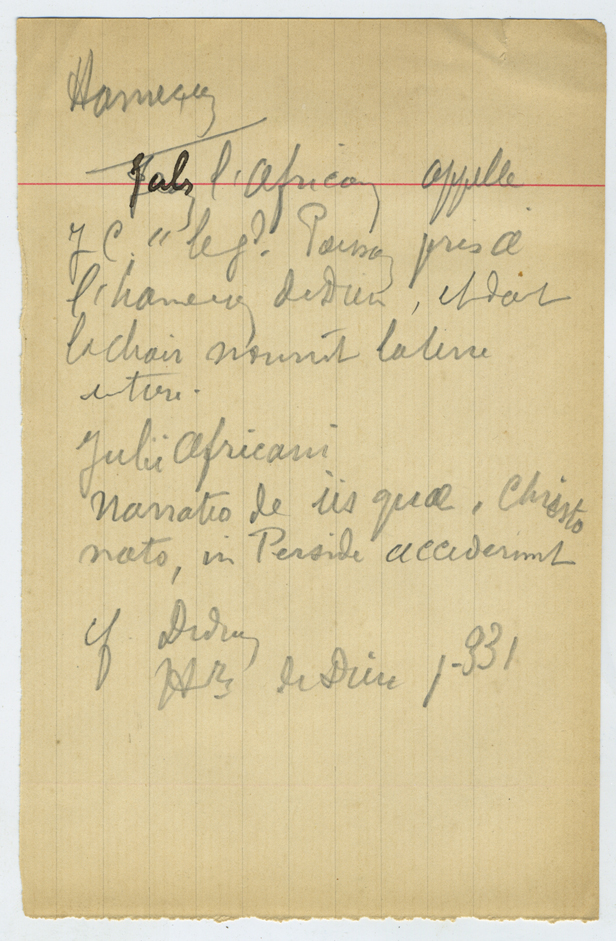 Hameçon
Jules l'Africain appelle
J C. "le gd. Poisson pris à
l'hameçon de Dieu, et dont
la chair nourrit la terre
entière.
Julii Africani
Narratio de iis quæ, Christo
nato, in Perside acciderunt
cf Didron
Hre de Dieu p-331